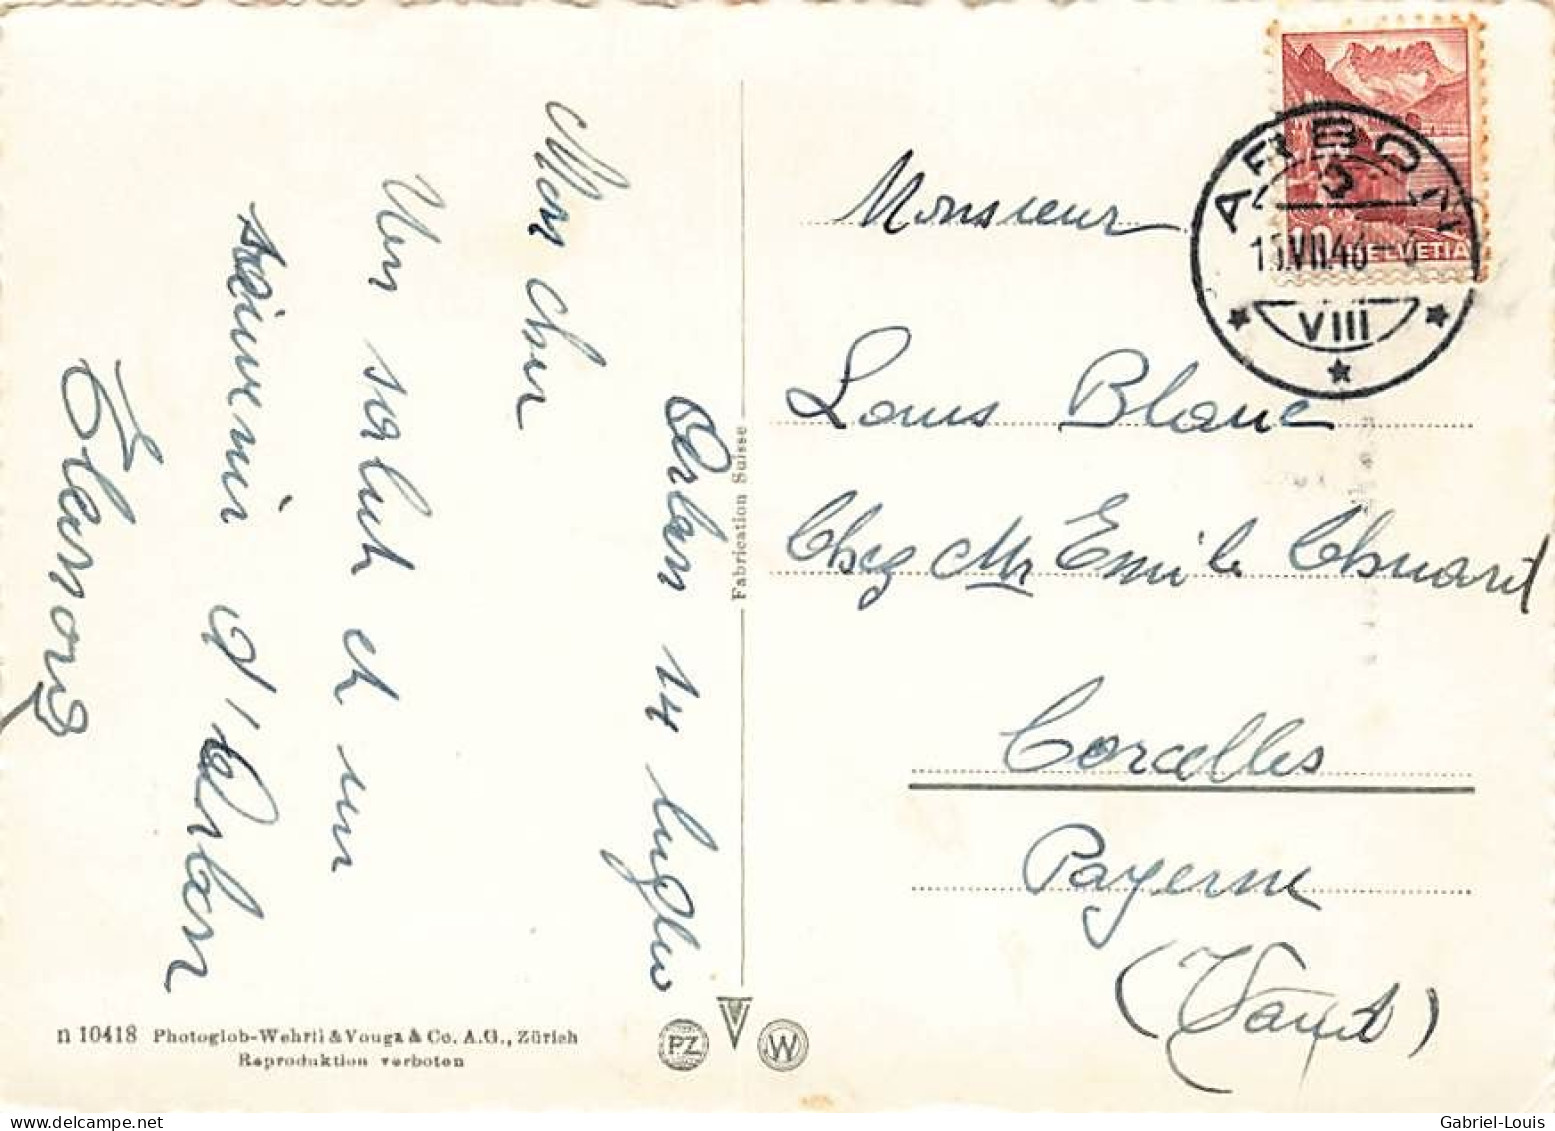 Arbon 14 luglio
Mon cher
Un salut et un
souvenir d'Arbon
Fabrication Suisse
n 10418 Photoglob-Wehrli & Vouga & Co. A.G., Zürich
Reproduktion verboten
PZ
W
ARBON
VIII
10
HELVETIA
Monsieur
Louis Blanc
Chez Mr Emile Chuard
Corcelles
Payerne
(Vaud)
Gabriel-Louis